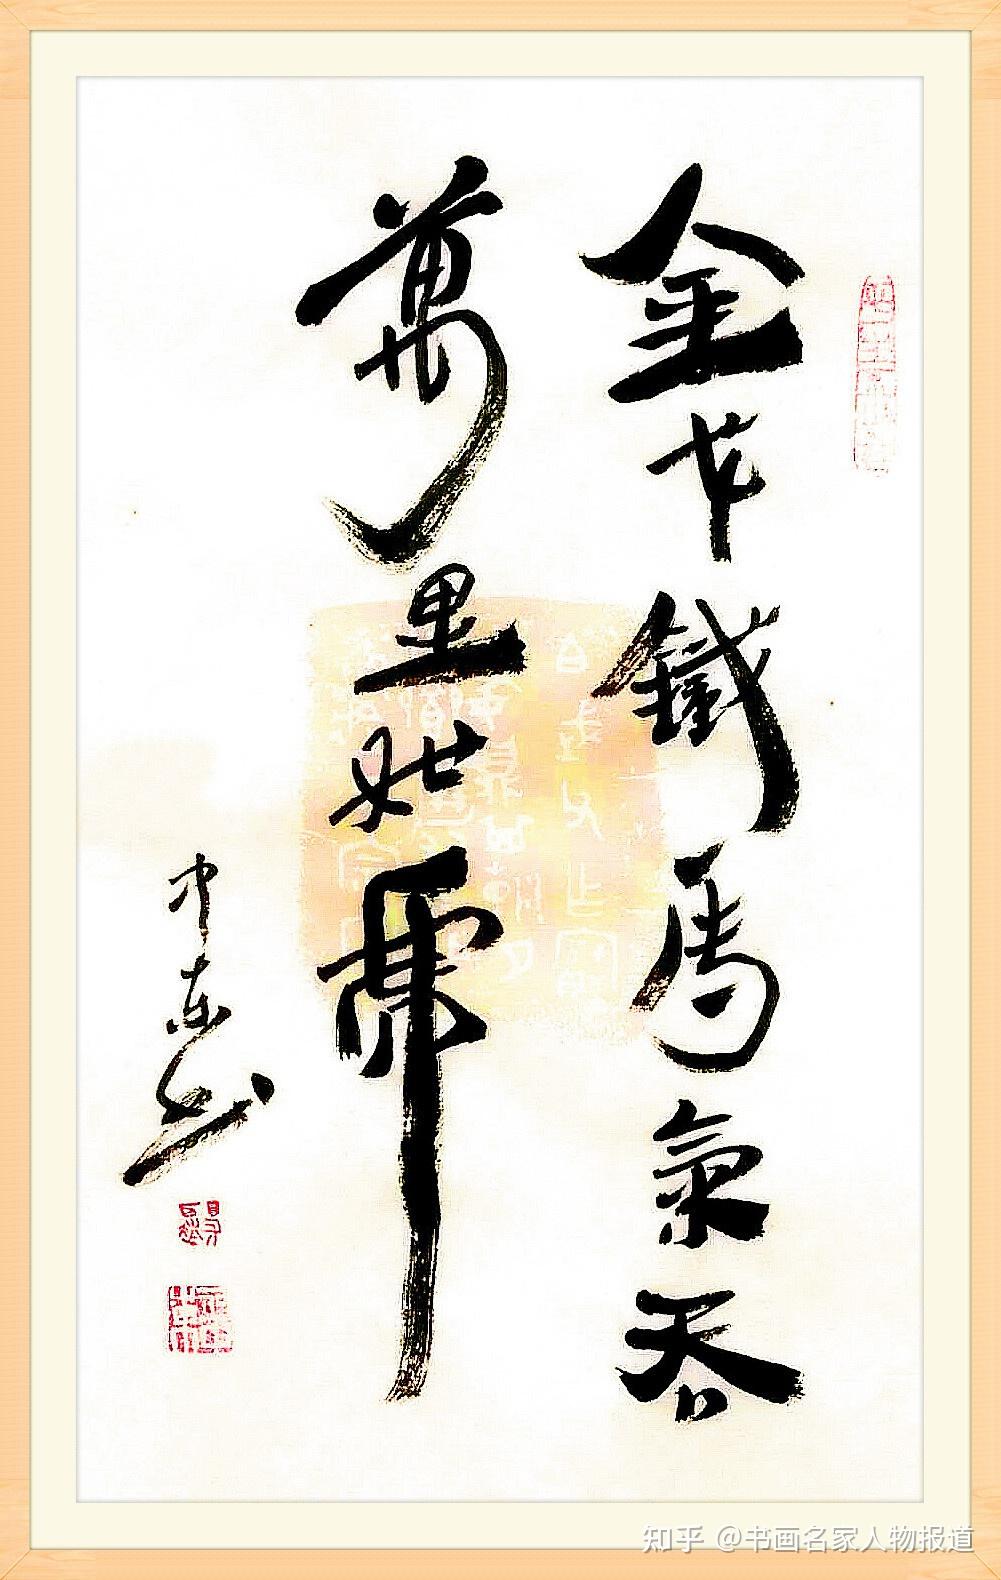 金戈鐵馬氣吞
萬里如虎
东书
知乎 @书画名家人物报道